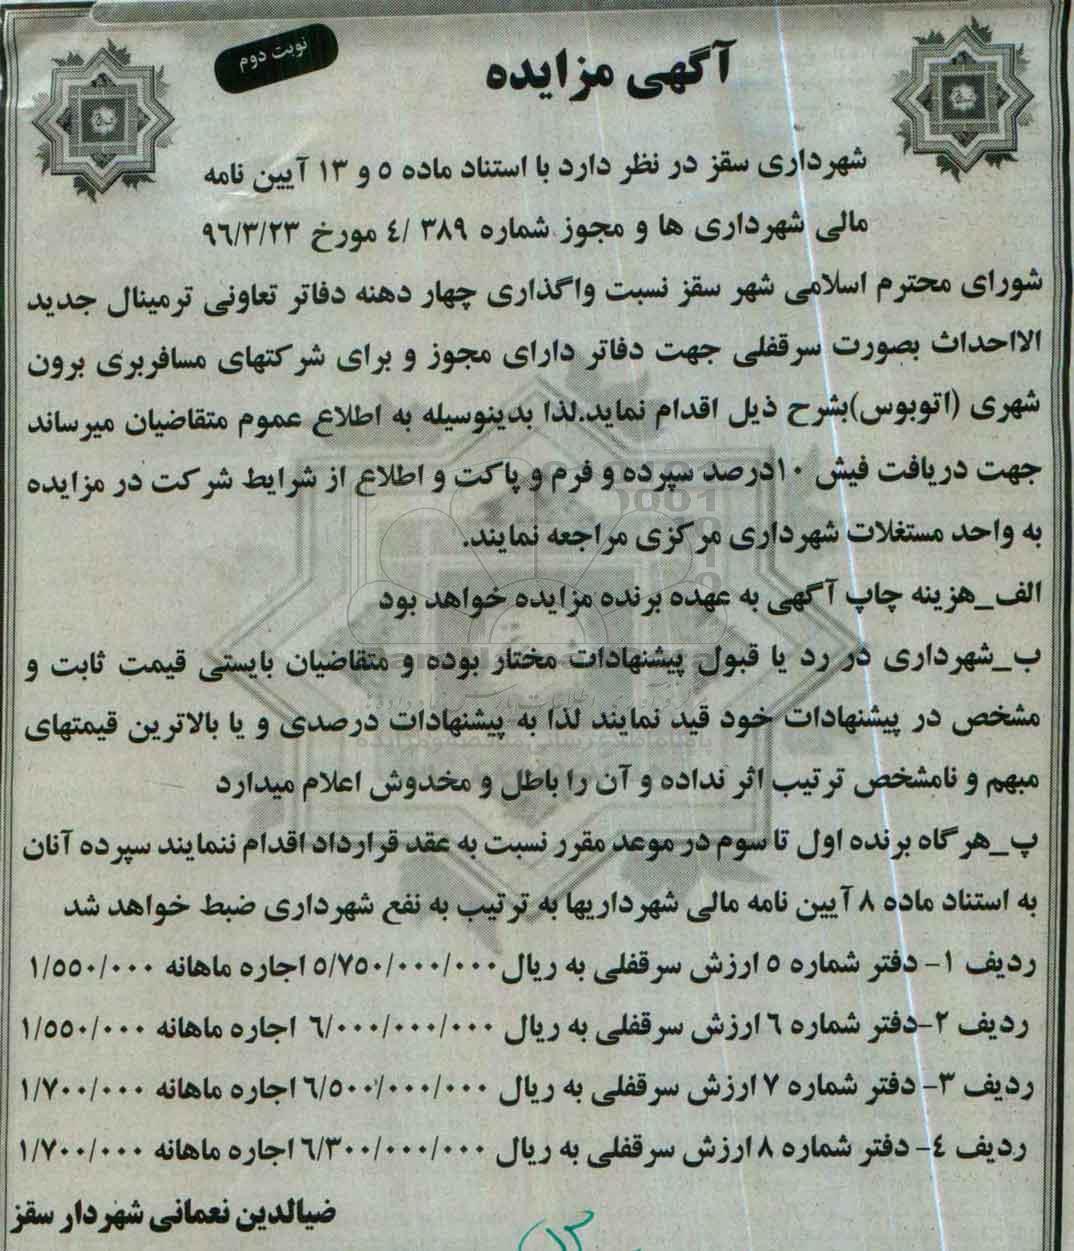 نوبت دوم
آگهی مزایده
شهرداری سقز در نظر دارد با استناد ماده ٥ و ۱۳ آیین نامه
مالی شهرداری ها و مجوز شماره ۳۸۹ /٤ مورخ ۹٦/۳/۲۳
شورای محترم اسلامی شهر سقز نسبت واگذاری چهار دهنه دفاتر تعاونی ترمینال جدید
الااحداث بصورت سرقفلی جهت دفاتر دارای مجوز و برای شرکتهای مسافربری برون
شهری (اتوبوس)بشرح ذیل اقدام نماید.لذا بدینوسیله به اطلاع عموم متقاضیان میرساند
جهت دریافت فیش ۱۰درصد سپرده و فرم و پاکت و اطلاع از شرایط شرکت در مزایده
به واحد مستغلات شهرداری مرکزی مراجعه نمایند.
الف_هزینه چاپ آگهی به عهده برنده مزایده خواهد بود
ب_شهرداری در رد یا قبول پیشنهادات مختار بوده و متقاضیان بایستی قیمت ثابت و
مشخص در پیشنهادات خود قید نمایند لذا به پیشنهادات درصدی و یا بالاترین قیمتهای
مبهم و نامشخص ترتیب اثر نداده و آن را باطل و مخدوش اعلام میدارد
پ_هرگاه برنده اول تا سوم در موعد مقرر نسبت به عقد قرارداد اقدام ننمایند سپرده آنان
به استناد ماده ۸ آیین نامه مالی شهرداریها به ترتیب به نفع شهرداری ضبط خواهد شد
ردیف ۱- دفتر شماره ٥ ارزش سرقفلی به ریال ٥/۷٥۰/۰۰۰/۰۰۰ اجاره ماهانه ۱/٥٥۰/۰۰۰
ردیف ۲-دفتر شماره ٦ ارزش سرقفلی به ریال ٦/۰۰۰/۰۰۰/۰۰۰ اجاره ماهانه ۱/٥٥۰/۰۰۰
ردیف ۳- دفتر شماره ۷ ارزش سرقفلی به ریال ٦/٥۰۰/۰۰۰/۰۰۰ اجاره ماهانه ۱/۷۰۰/۰۰۰
ردیف ٤- دفتر شماره ۸ ارزش سرقفلی به ریال ٦/۳۰۰/۰۰۰/۰۰۰ اجاره ماهانه ۱/۷۰۰/۰۰۰
ضیالدین نعمانی شهردار سقز